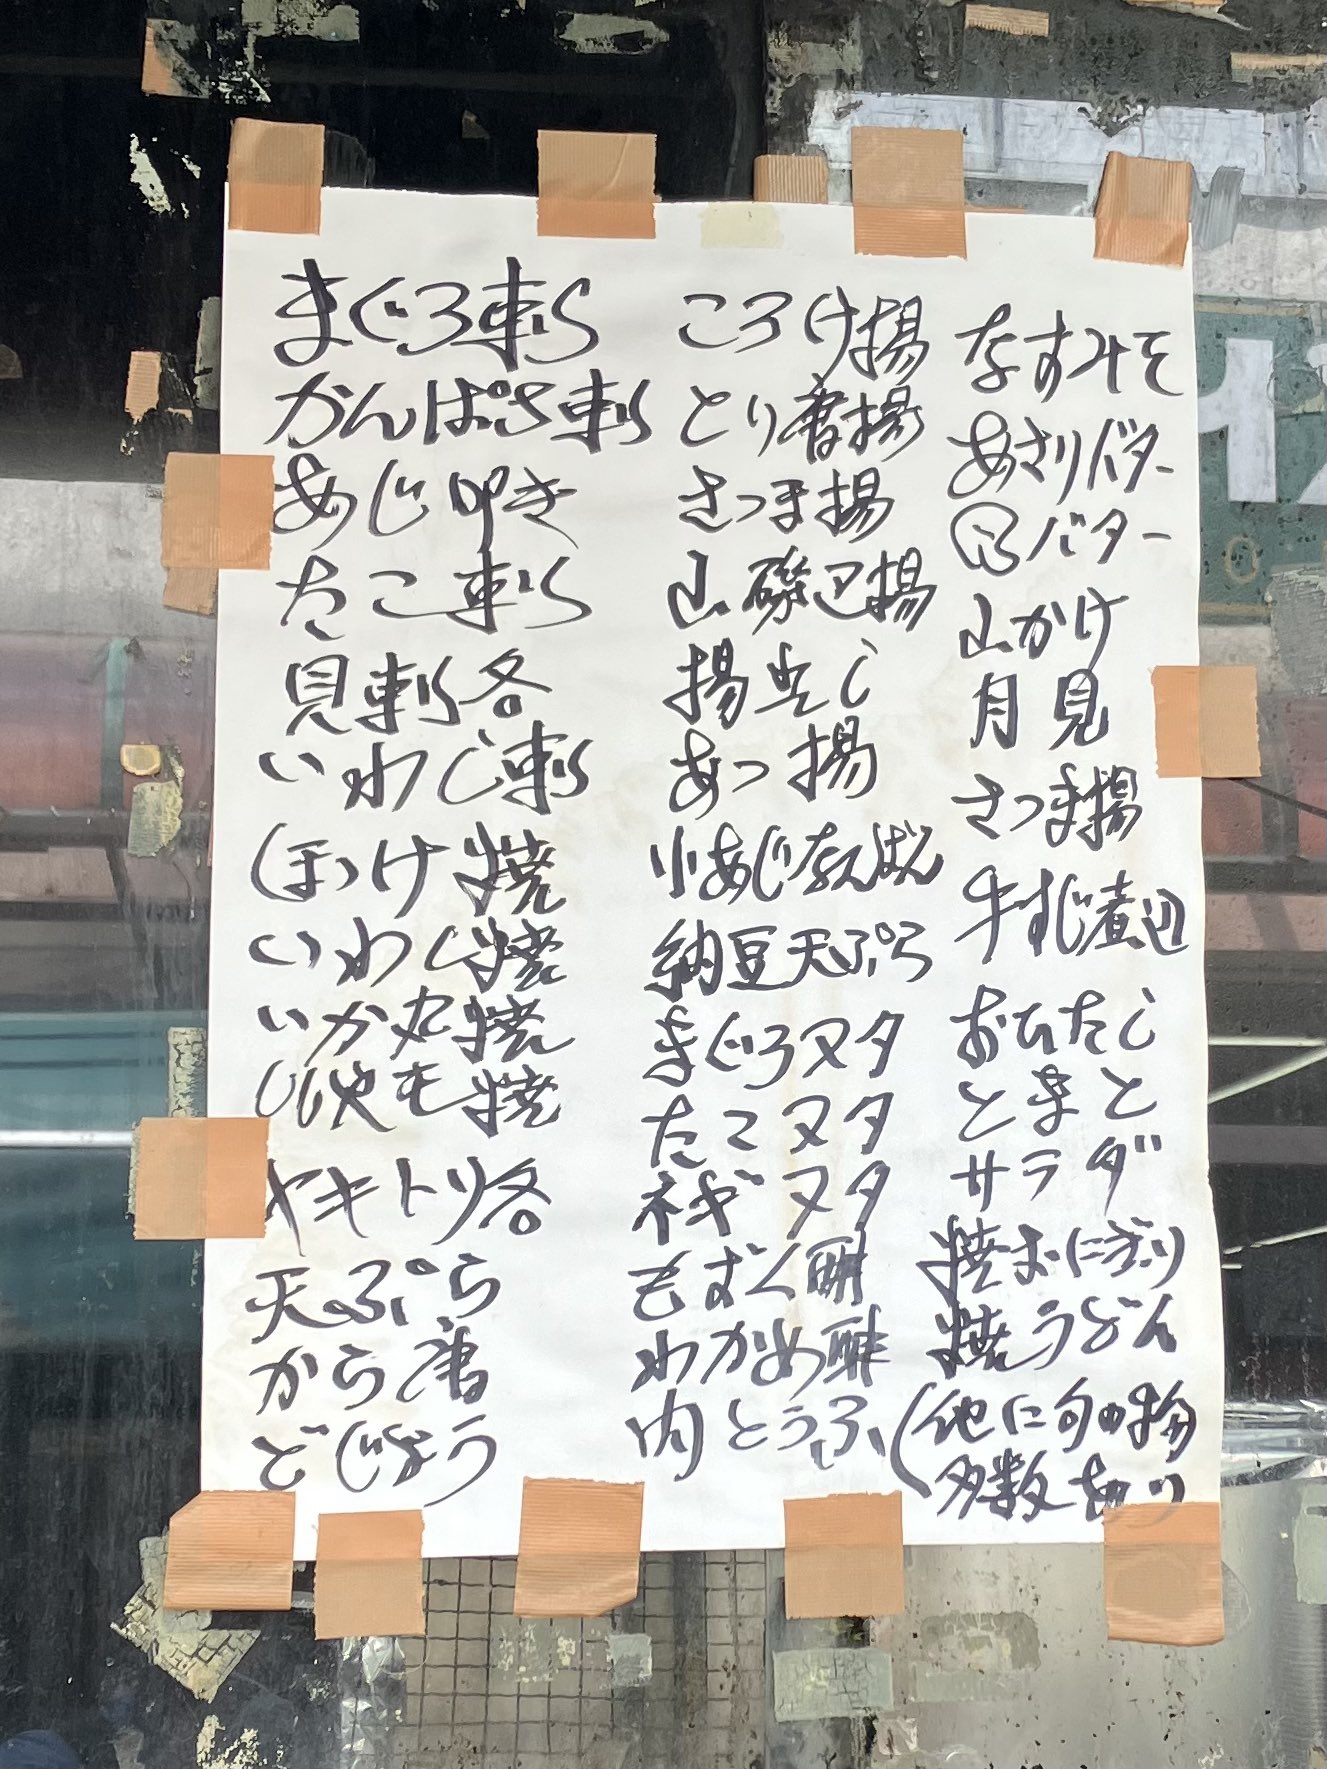 まぐろ刺し
かんぱち刺し
あじ叩き
たこ刺し
貝刺し各
いわし刺し
ほっけ焼
いわし焼
いか丸焼
ししゃも焼
ヤキトリ各
天ぷら
から唐
どじょう
ころっけ揚
とり唐揚
さつま揚
山磯辺揚
揚出し
あつ揚
小あじなんばん
納豆天ぷら
まぐろヌタ
たこヌタ
ネギヌタ
もずく酢
わかめ酢
肉とうふ
なすみそ
あさりバター
バター
山かけ
月見
さつま揚
牛すじ煮込
おひたし
とまと
サラダ
焼おにぎり
焼うどん
(他に旬の物
多数あり